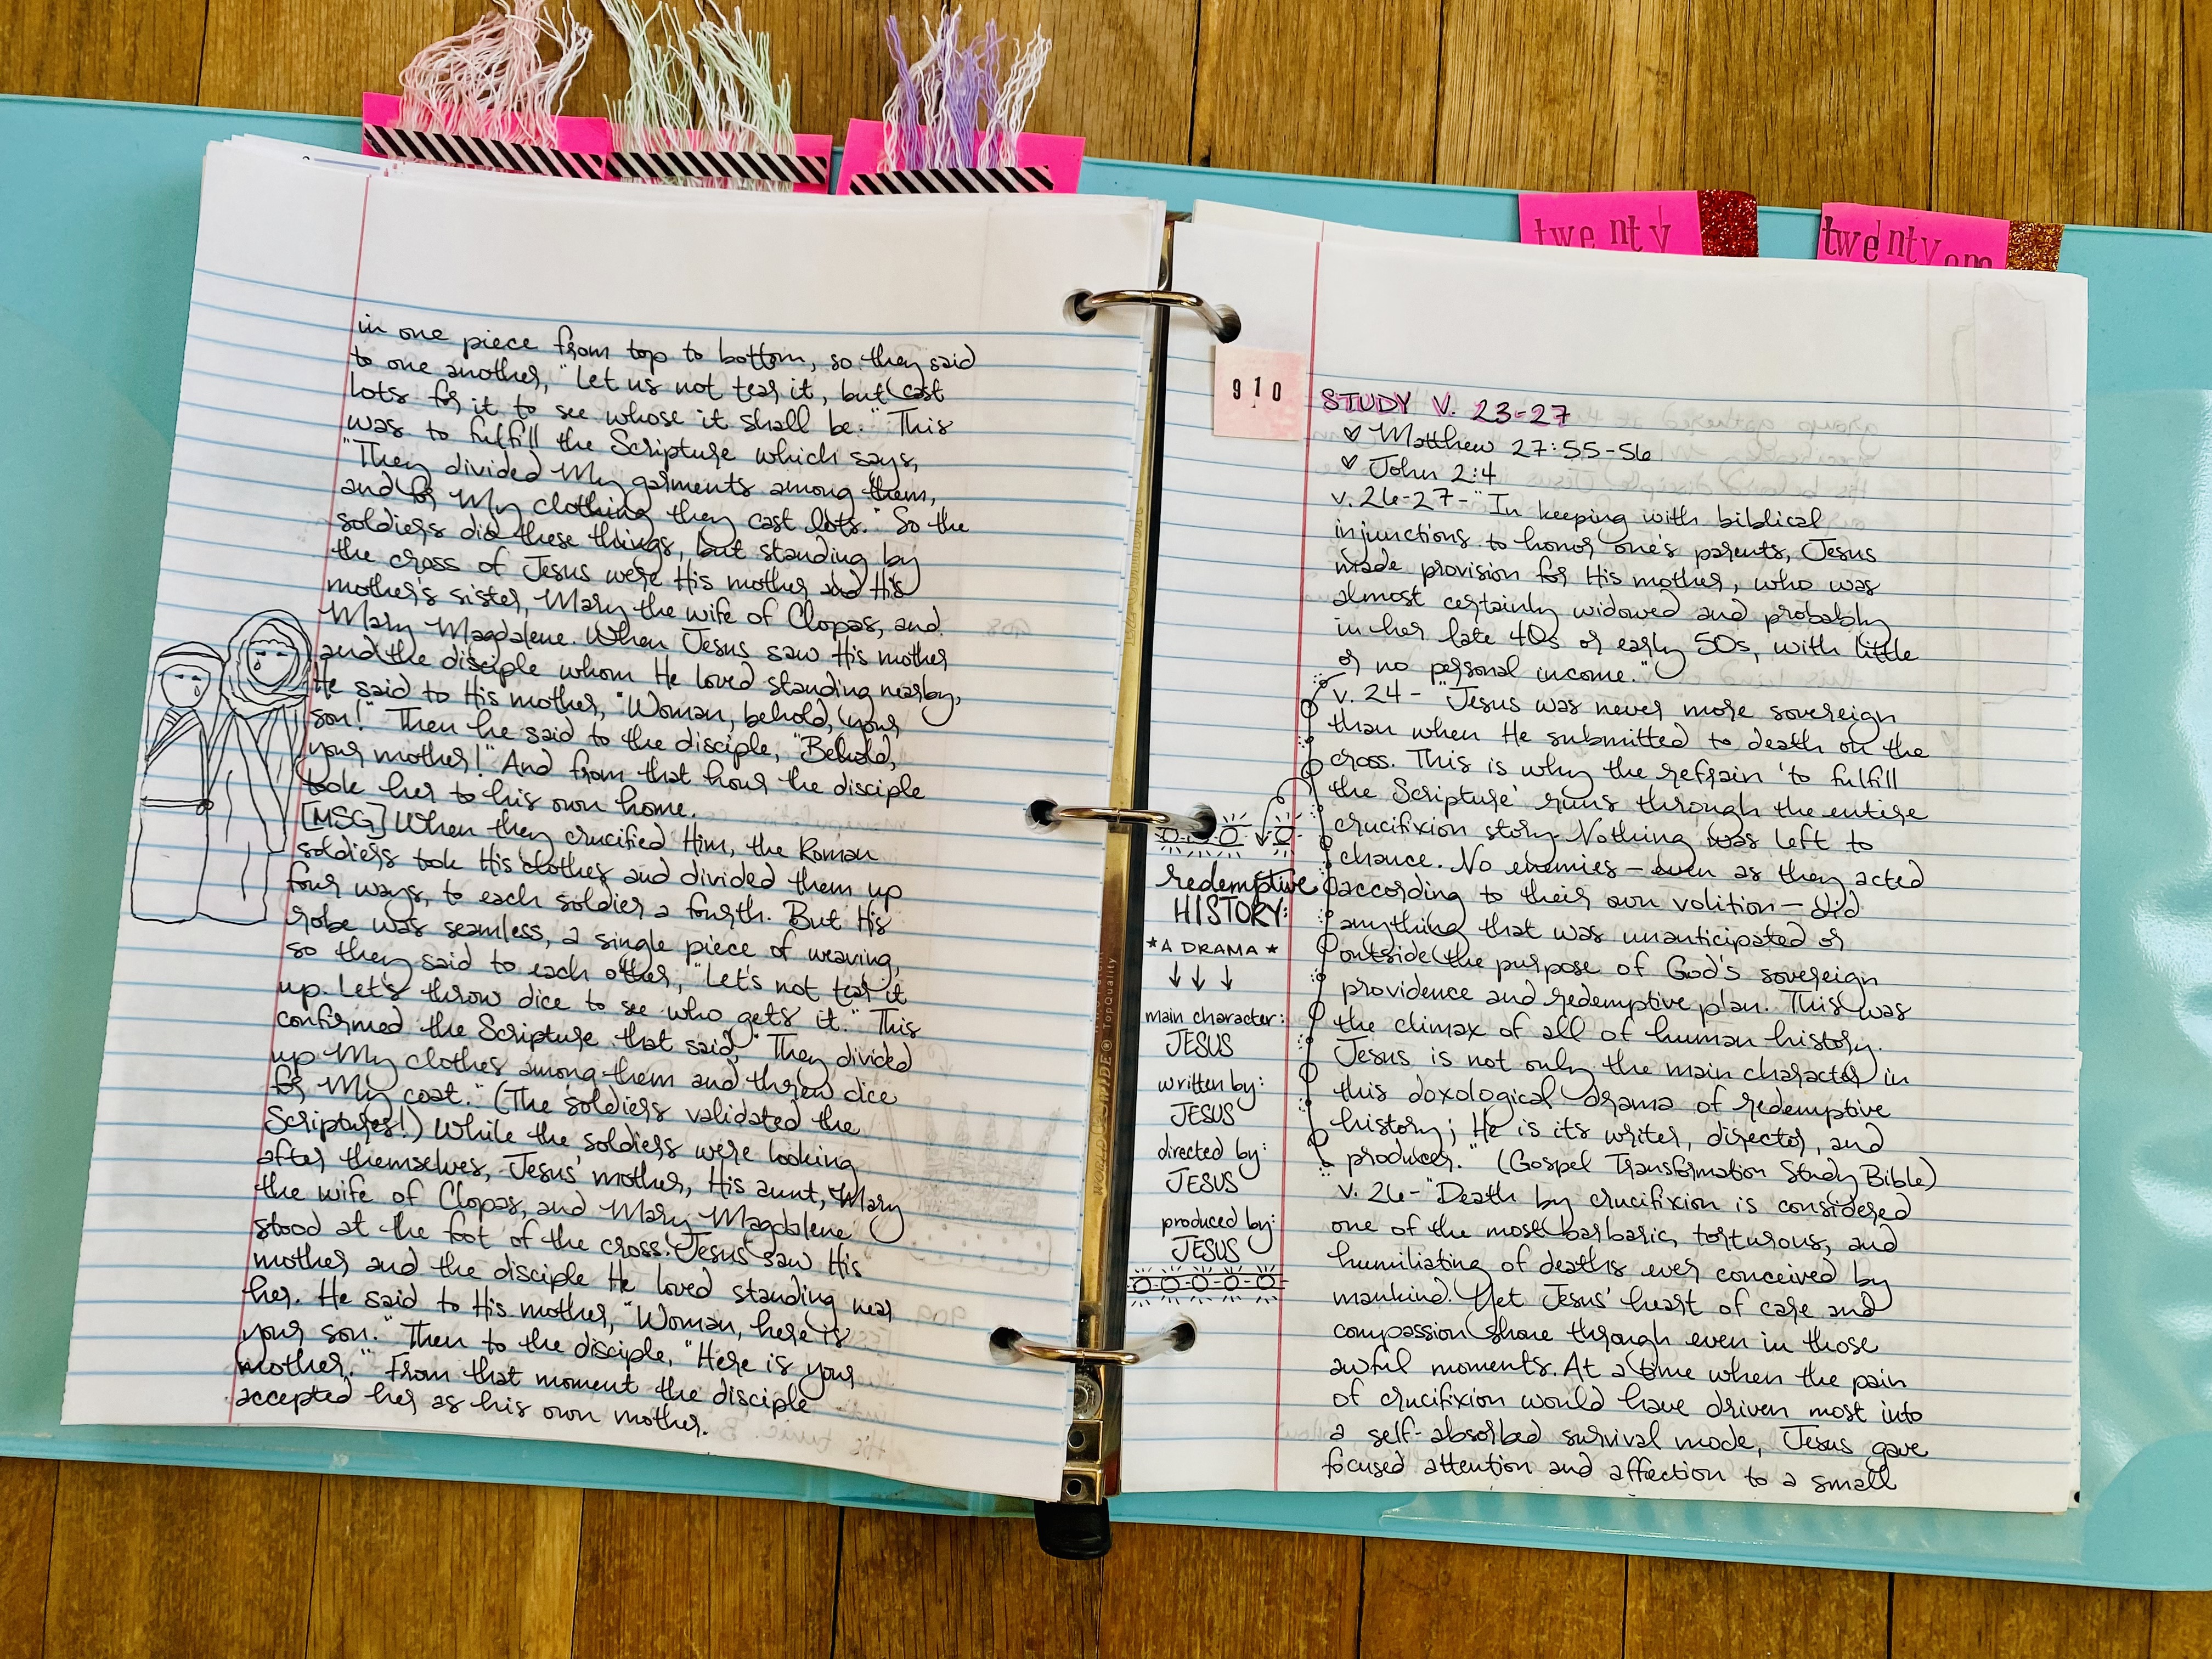 twenty
twenty one
in one piece from top to bottom, so they said
to one another, "Let us not tear it, but cast
lots for it to see whose it shall be." This
was to fulfill the Scripture which says,
"They divided My garments among them,
and for My clothing they cast lots." So the
soldiers did these things, but standing by
the cross of Jesus were His mother and His
mother's sister, Mary the wife of Clopas, and
Mary Magdalene. When Jesus saw His mother
and the disciple whom He loved standing nearby,
He said to His mother, "Woman, behold, your
son!" Then he said to the disciple, "Behold,
your mother!" And from that hour the disciple
took her to his own home.
[MSG] When they crucified Him, the Roman
soldiers took His clothes and divided them up
four ways, to each soldier a fourth. But His
robe was seamless, a single piece of weaving,
so they said to each other, "Let's not tear it
up. Let's throw dice to see who gets it." This
confirmed the Scripture that said, "They divided
up My clothes among them and threw dice
for My coat." (The soldiers validated the
Scriptures!) While the soldiers were looking
after themselves, Jesus' mother, His aunt, Mary
the wife of Clopas, and Mary Magdalene
stood at the foot of the cross. Jesus saw His
mother and the disciple He loved standing near
her. He said to His mother, "Woman, here is
your son." Then to the disciple, "Here is your
mother." From that moment the disciple
accepted her as his own mother.
WORLD WIDE Top Quality
910
STUDY V. 23-27
♡ Matthew 27:55-56
♡ John 2:4
v. 26-27- "In keeping with biblical
injunctions to honor one's parents, Jesus
made provision for His mother, who was
almost certainly widowed and probably
in her late 40s or early 50s, with little
or no personal income."
v. 24 - "Jesus was never more sovereign
than when He submitted to death on the
cross. This is why the refrain 'to fulfill
the Scripture' runs through the entire
crucifixion story. Nothing was left to
chance. No enemies - even as they acted
according to their own volition - did
anything that was unanticipated or
outside the purpose of God's sovereign
providence and redemptive plan. This was
the climax of all of human history.
Jesus is not only the main character in
this doxological drama of redemptive
history; He is its writer, director, and
producer." (Gospel Transformation Study Bible)
v. 26- "Death by crucifixion is considered
one of the most barbaric, torturous, and
humiliating of deaths ever conceived by
mankind. Yet Jesus' heart of care and
compassion shone through even in those
awful moments. At a time when the pain
of crucifixion would have driven most into
a self-absorbed survival mode, Jesus gave
focused attention and affection to a small
redemptive
HISTORY:
*A DRAMA*
↓ ↓ ↓
main character:
JESUS
written by:
JESUS
directed by:
JESUS
produced by:
JESUS